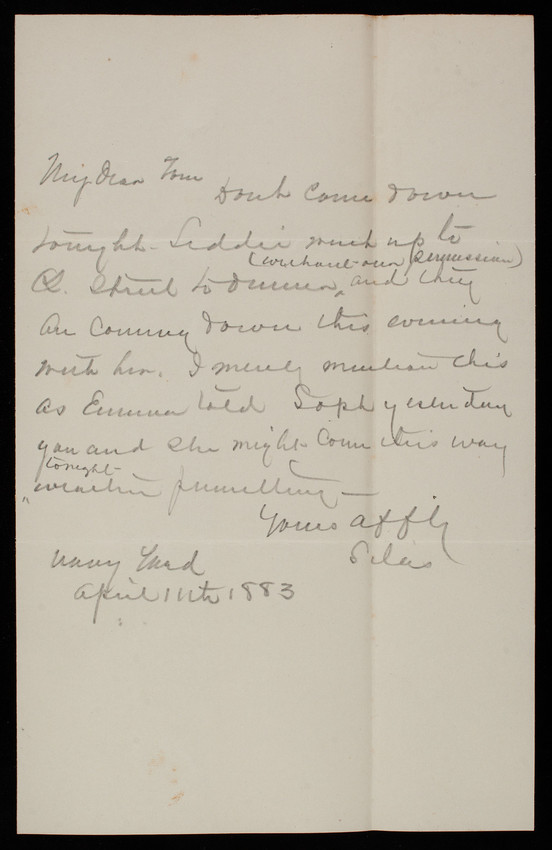 My dear Tom
Dont come down
tonight - Liddie went up to
(without our permission)
Q. Street to dinner, and they
are coming down this evening
with her. I merely mention this
as Emma told Soph yesterday
you and she might come this way
tonight -
"weather permitting -
Yours affly
Silas
Navy Yard
April 11th 1883